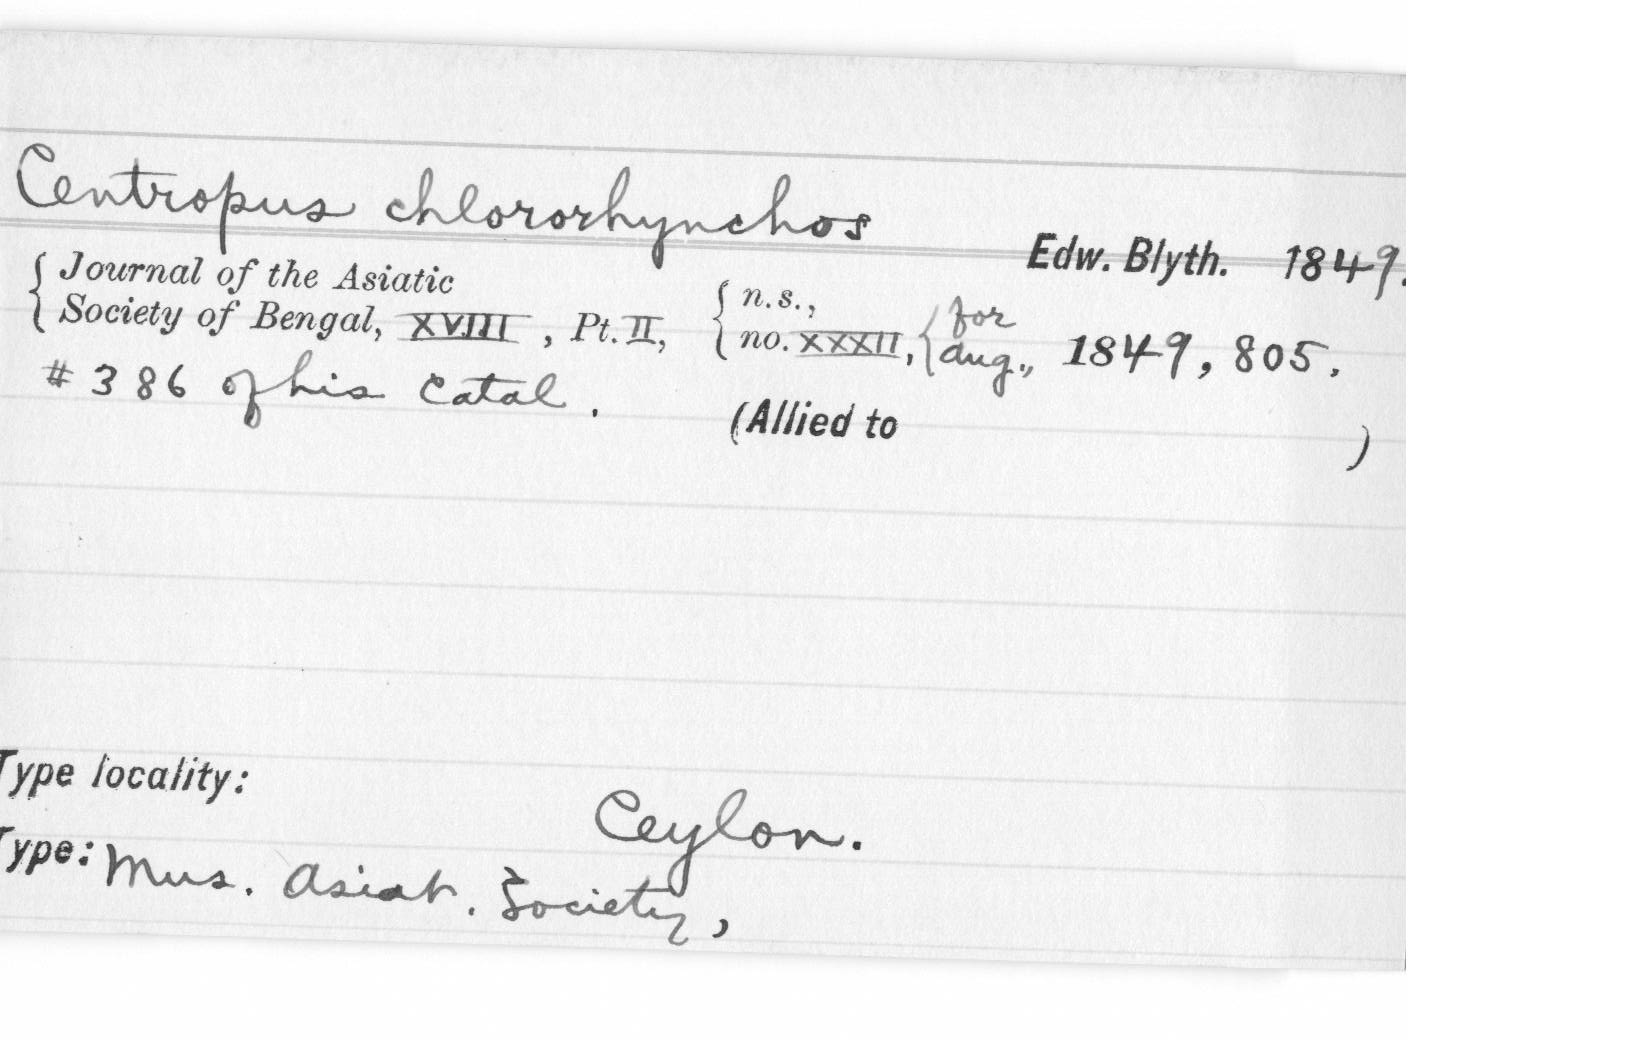 Centropus chlororhynchos
Edw. Blyth. 1849.
{ Journal of the Asiatic { n.s., { for
{ Society of Bengal, XVIII, Pt. II, { no. XXXII, { Aug., 1849, 805.
# 386 of his Catal.
(Allied to )
Type locality:
Ceylon.
Type: Mus. Asiat. Society,